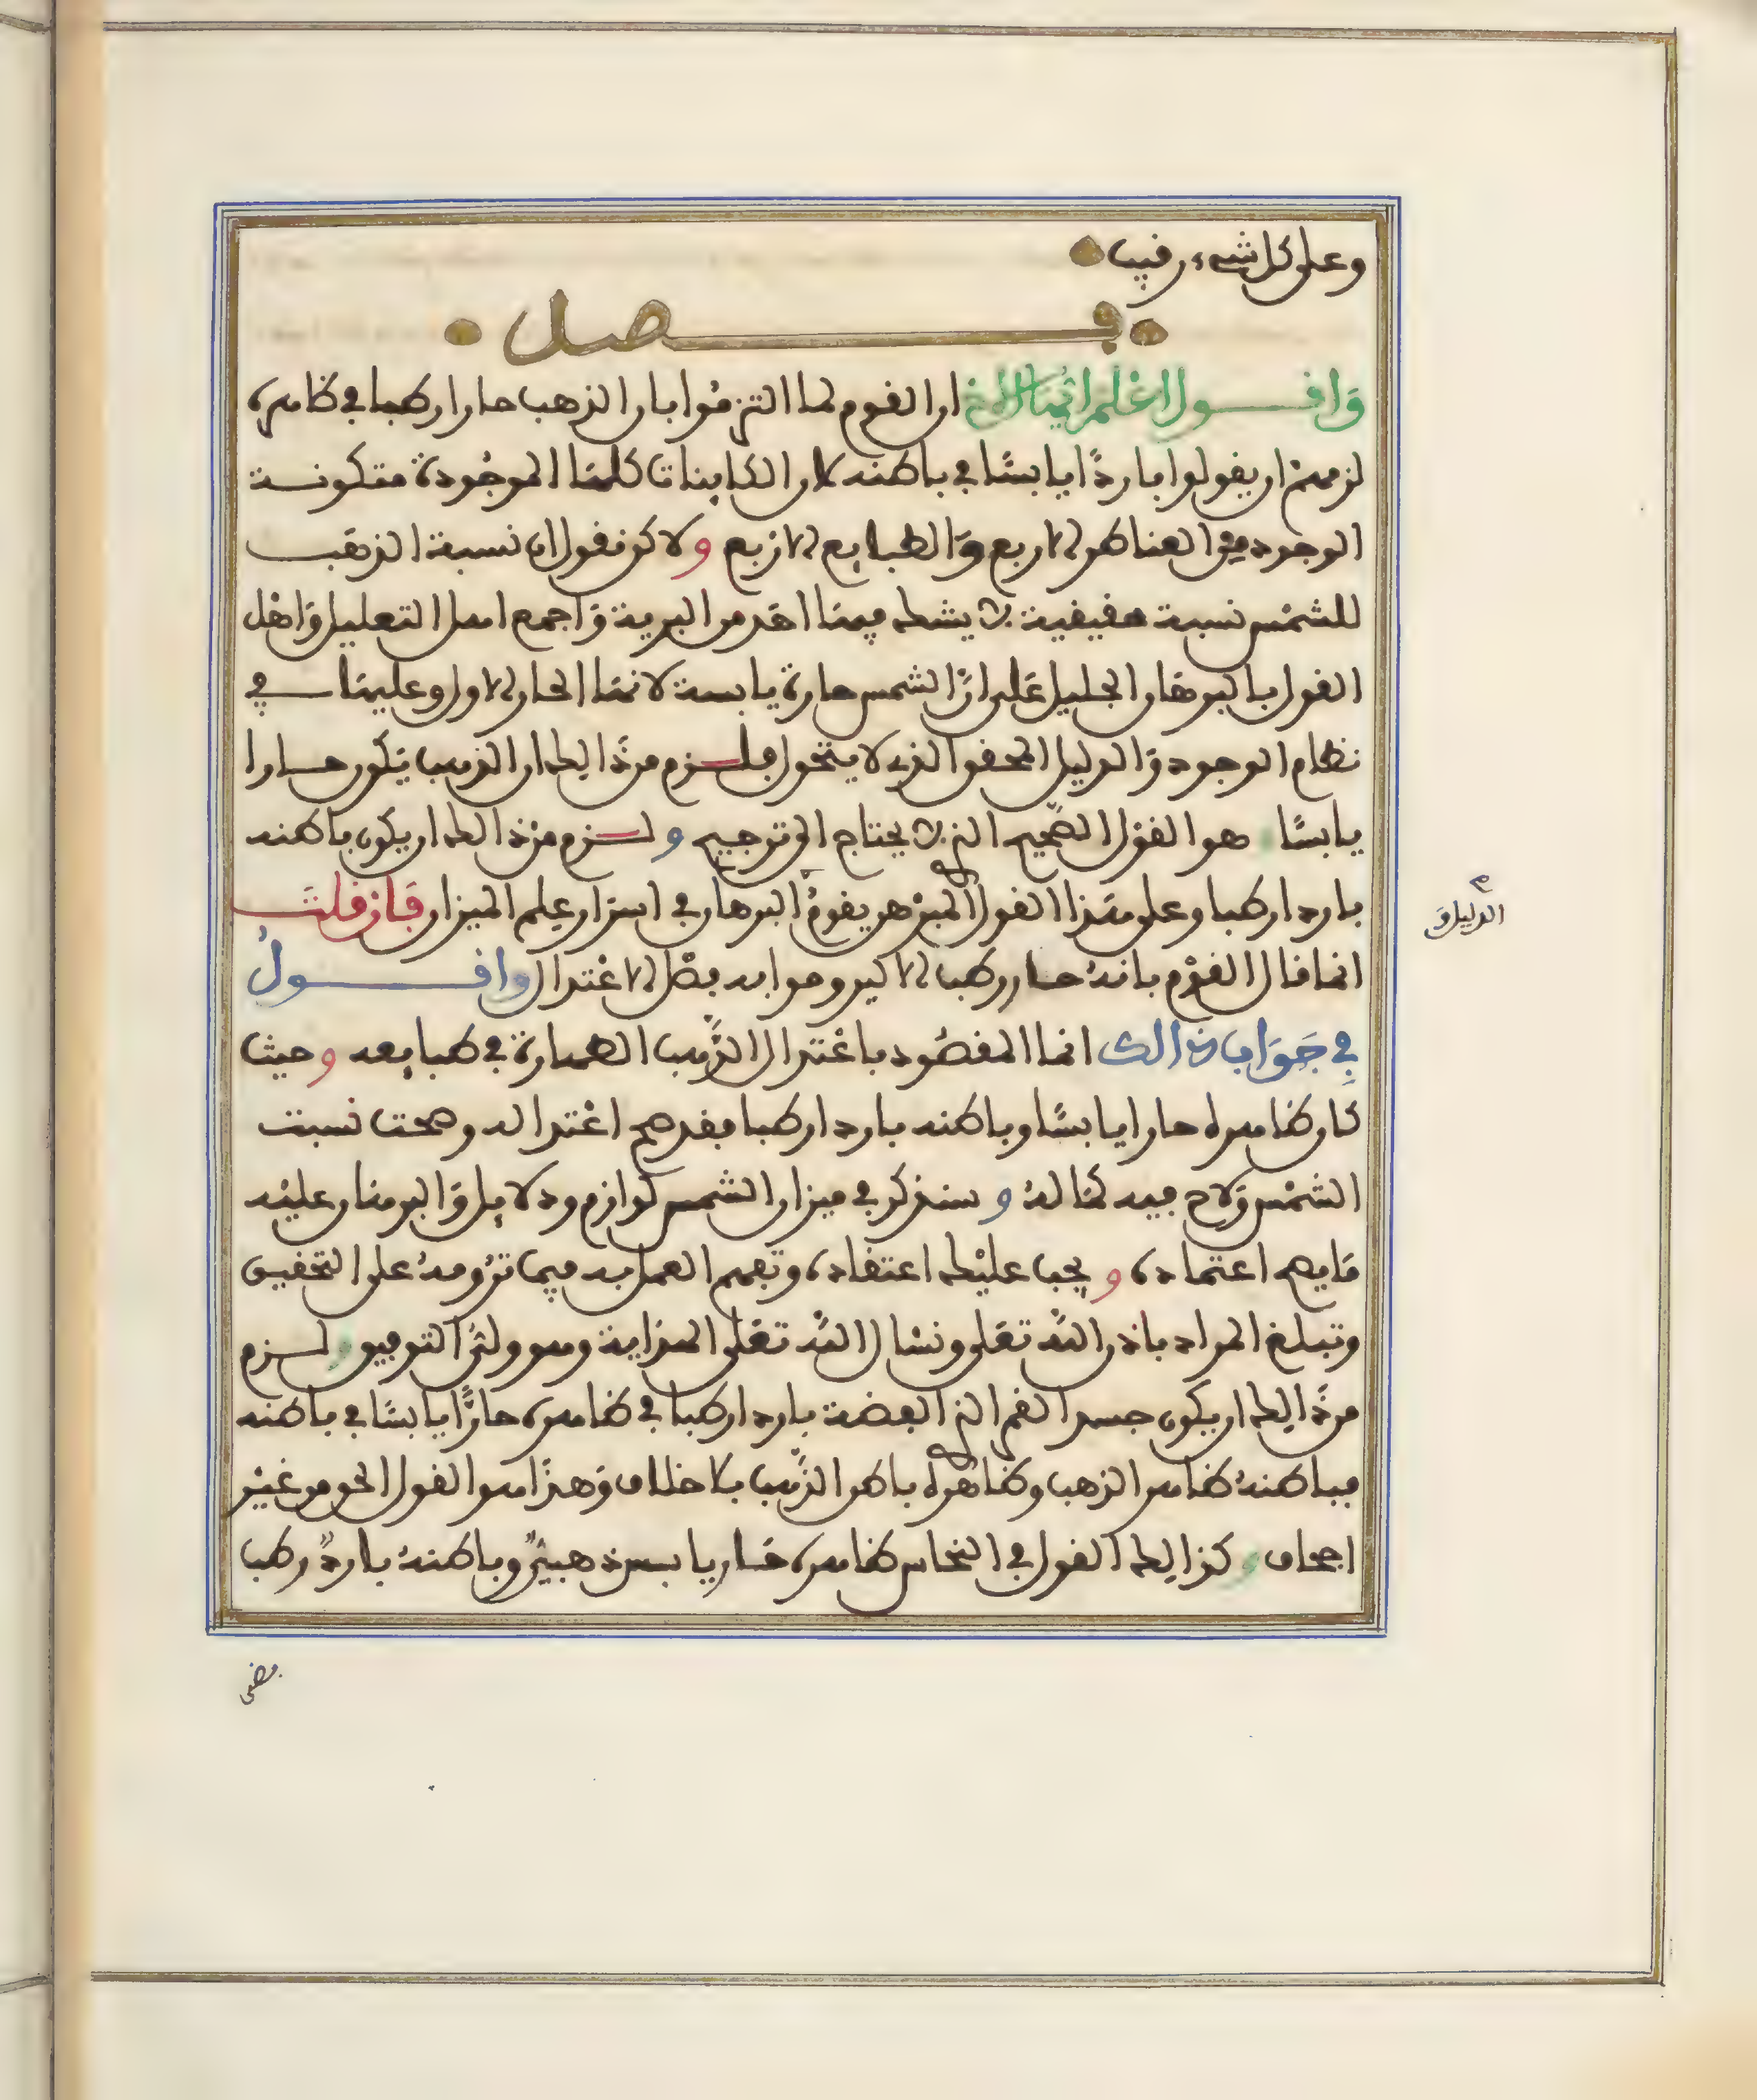 وعلى كل شيء رقيب
فصل
وَاقول اعْلم ايّها الاخ ان القوم لما التزمُوا بان الذهب حارا رطبا في ظاهره
لزمهمْ ان يقولوا باردًا يابسًا في باطنه لان الكاينات كلها الموجُودة متكونة
الوجود من العناصر الاربع وَالطبايع الارْبع ولاكن نقول ان نسبة الذهَب
للشمْس نسبة حقيقية لا يشك فيها احَد من البرية وَاجمع اهل التعليل وَاهْل
القول بالبرهَان الجليل عَلى انّ الشمس حارة يابسة لانهَا الحار الاول وعليهَا في
نظام الوجود وَالدليل المحقق الذي لا يتحول فلزم من ذَالك ان الذهب يَكون حارا
يابسًا هو القوْل الصَّحيح الذي لا يحتاج الى ترجيح ولزم منْ ذالك ان يكون باطنه
باردا رطبا وعلى هَذا القول المبرهن يقومُ البرهان في اسرَار علم الميزان فَانْ قلتَ
انما قال القوْم بانهُ حار رطب الاكير وهوابه بصْل الاعْتدال واقول
فِي جَوَاب ذالك انما المقصُود باعْتدال الذَّهب الطهارة في طبايعه وحيث
كان ظاهره حارا يابسًا وباطنه باردا رطبا فقد صح اعْتداله وصحت نسبت
الشمْس وَلاح فيه كمَالهُ وسنذكر في ميزان الشمس لوازم ودلايل وَالبرهَان عليْه
مَا يصح اعتماده ويجب عليْك اعتقاده وتفهم العمل به فيما ترُومهُ على التحقيق
وتبلغ المراد باذن اللَّه تعَلى ونسْال اللَّه تعَلى الهداية وهو ولىُّ التوفيق ولزم
من ذَالِك ان يكون جسد القمر الذي الفضة باردا رطبا في ظاهره حارًّا يابسًا في باطنه
فباطنهُ ظاهر الذهب وظاهره باطن الذَّهب بلا خلاف وَهذَا هو القول الحق من غيْر
اجحاف وكذالك القول في النحاس ظاهره حَار يابس ذهبيٌّ وباطنهُ باردٌ رطب
م
الدليل وَ
فضى